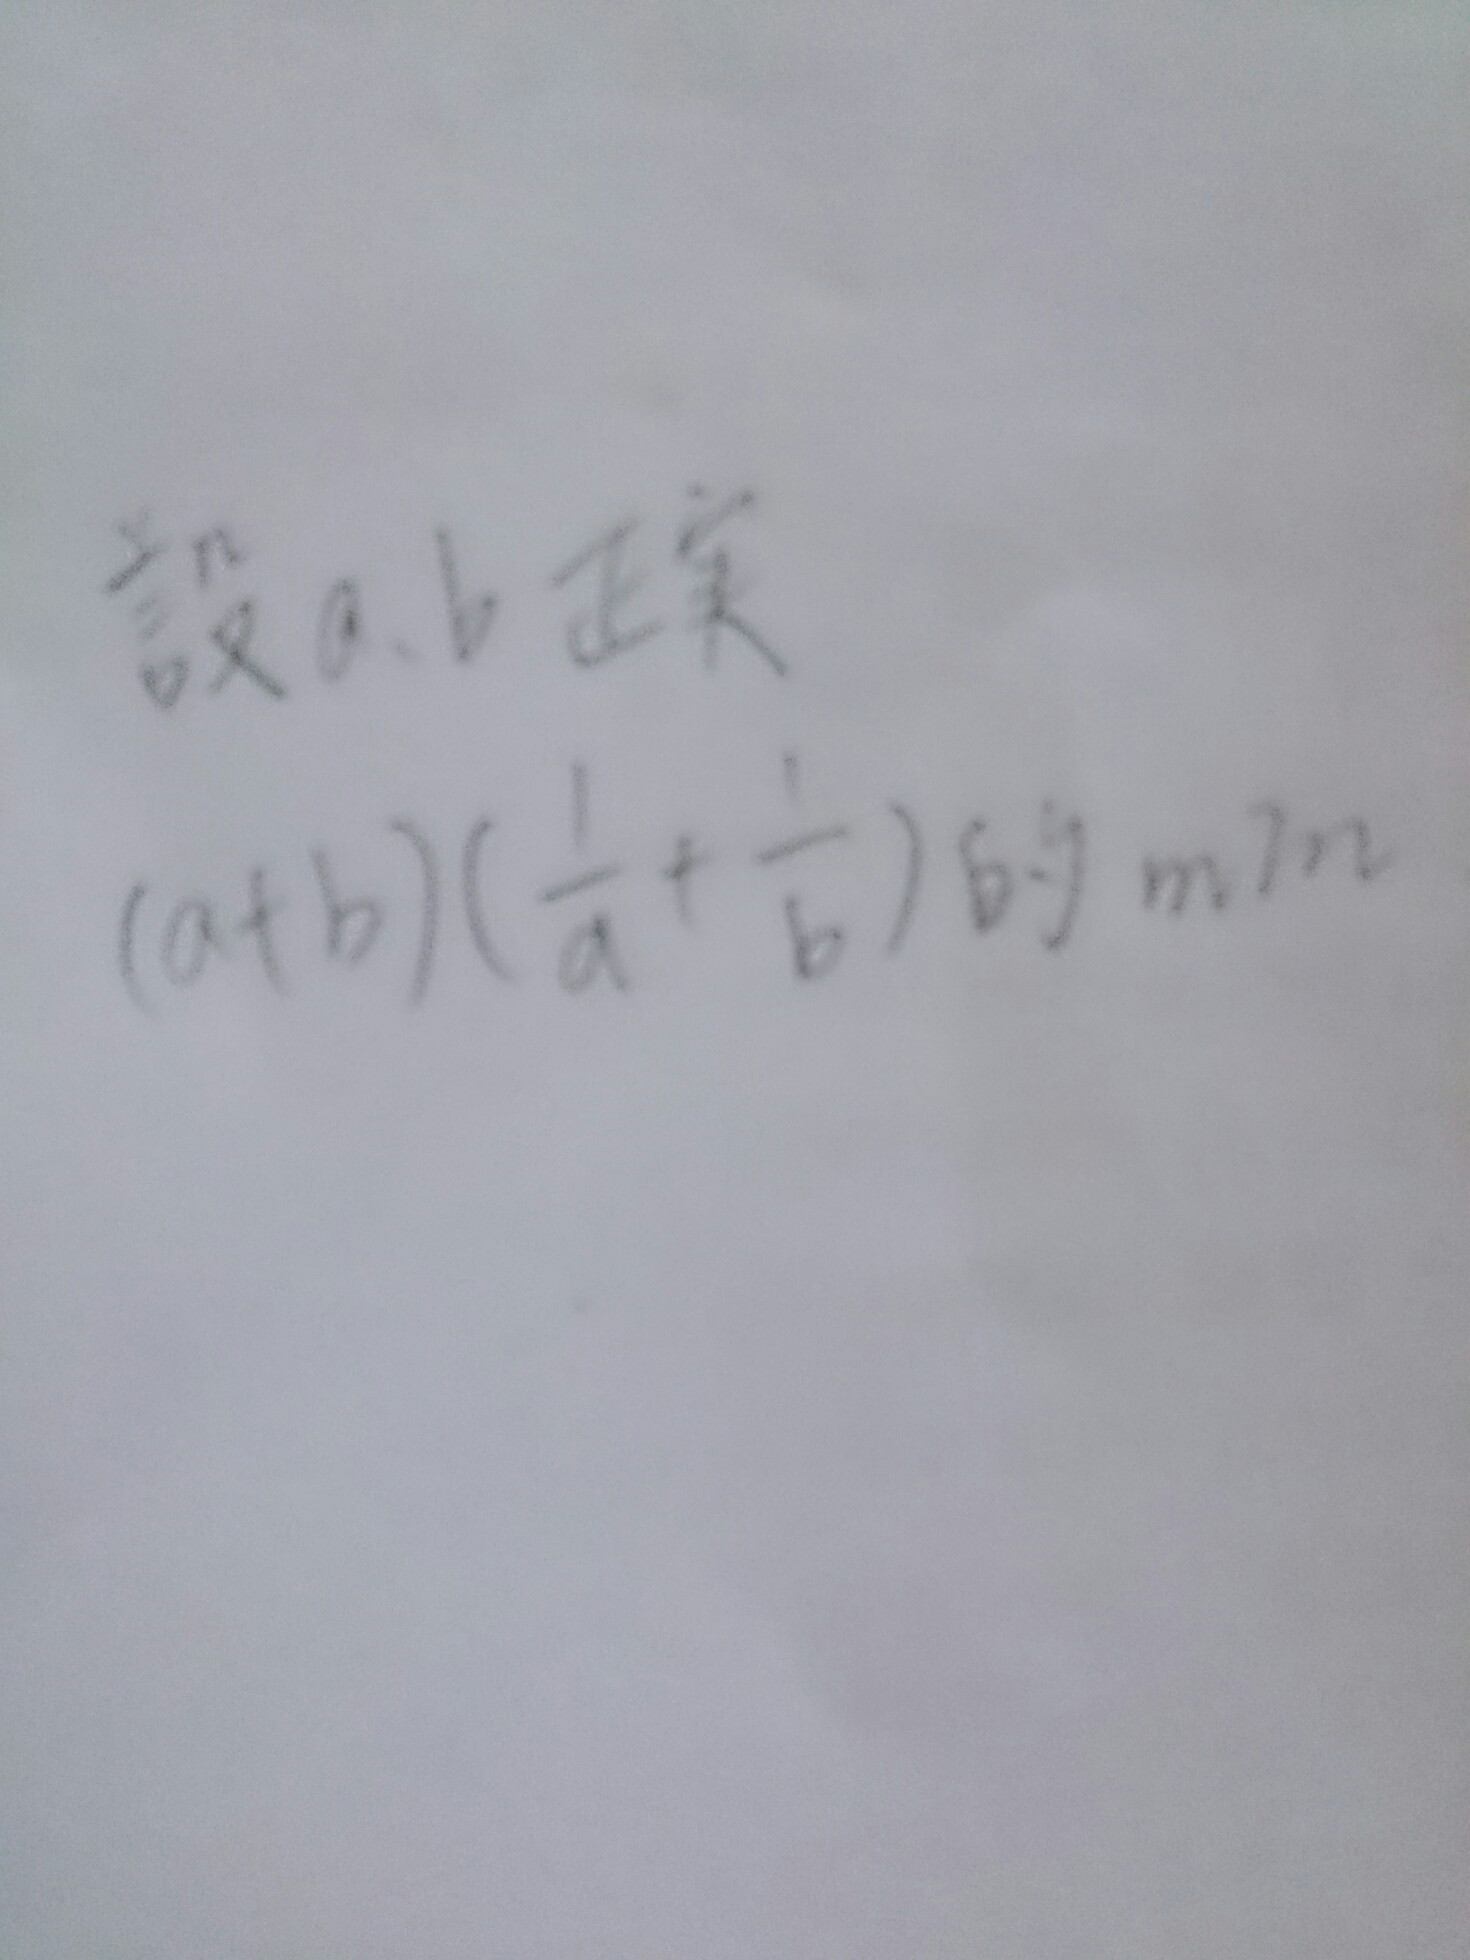 設a、b正实
(a+b)(1/a+1/b)的min